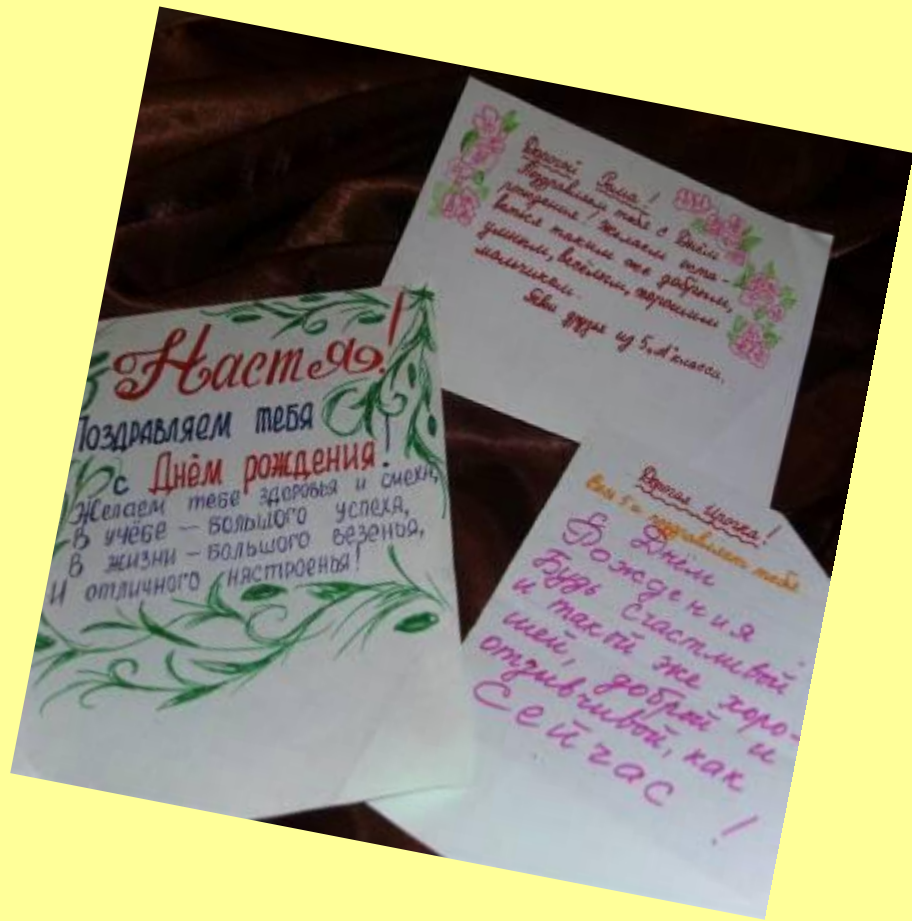 Настя!
Поздравляем тебя
с Днём рождения!
Желаем тебе здоровья и смеха,
В учёбе – большого успеха,
В жизни – большого везенья,
И отличного настроенья!
Дорогой Рома!
Поздравляем тебя с Днём
рождения! Желаем оста-
ваться таким же добрым,
умным, весёлым, хорошим
мальчиком.
Твои друзья из 5 „А" класса.
Дорогая Ирочка!
поздравляет тебя
с Днём
Рождения
Будь счастливой
и такой же хоро-
шей, доброй и
отзывчивой, как
Сейчас!